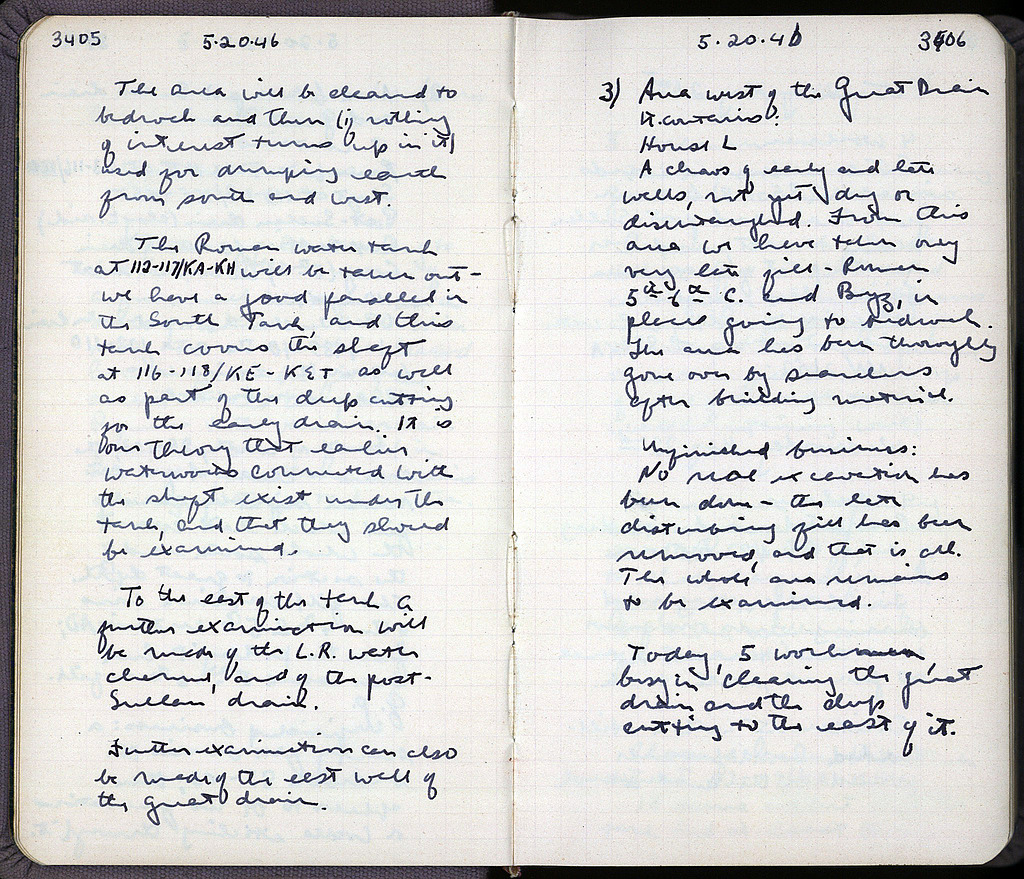 3405 5.20.46
The area will be cleared to
bedrock and then (if nothing
of interest turns up in it)
used for dumping earth
from south and west.
The Roman water tank
at 112-117/KA-KH will be taken out -
we have a good parallel in
the South Tank, and this
tank covers the shaft
at 116-118/KE-KΣT as well
as part of the deep cutting
for the early drain. It is
our theory that earlier
waterworks connected with
the shaft exist under the
tank, and that they should
be examined.
To the east of the tank a
further examination will
be made of the L.R. water
channel, and of the post-
Sullan drain.
Further examination can also
be made of the east wall of
the great drain.
5.20.46 3406
3) Area west of the Great Drain
It contains:
House L
A chaos of early and late
walls, not yet dug or
disentangled. From this
area we have taken only
very late fill - Roman
5th 6th C. and Byz, in
places going to bedrock.
The area has been thoroughly
gone over by searchers
after building material.
Unfinished business:
No real excavation has
been done - the late
disturbing fill has been
removed, and that is all.
The whole area remains
to be examined.
Today, 5 workmen,
busy in cleaning the great
drain and the deep
cutting to the east of it.